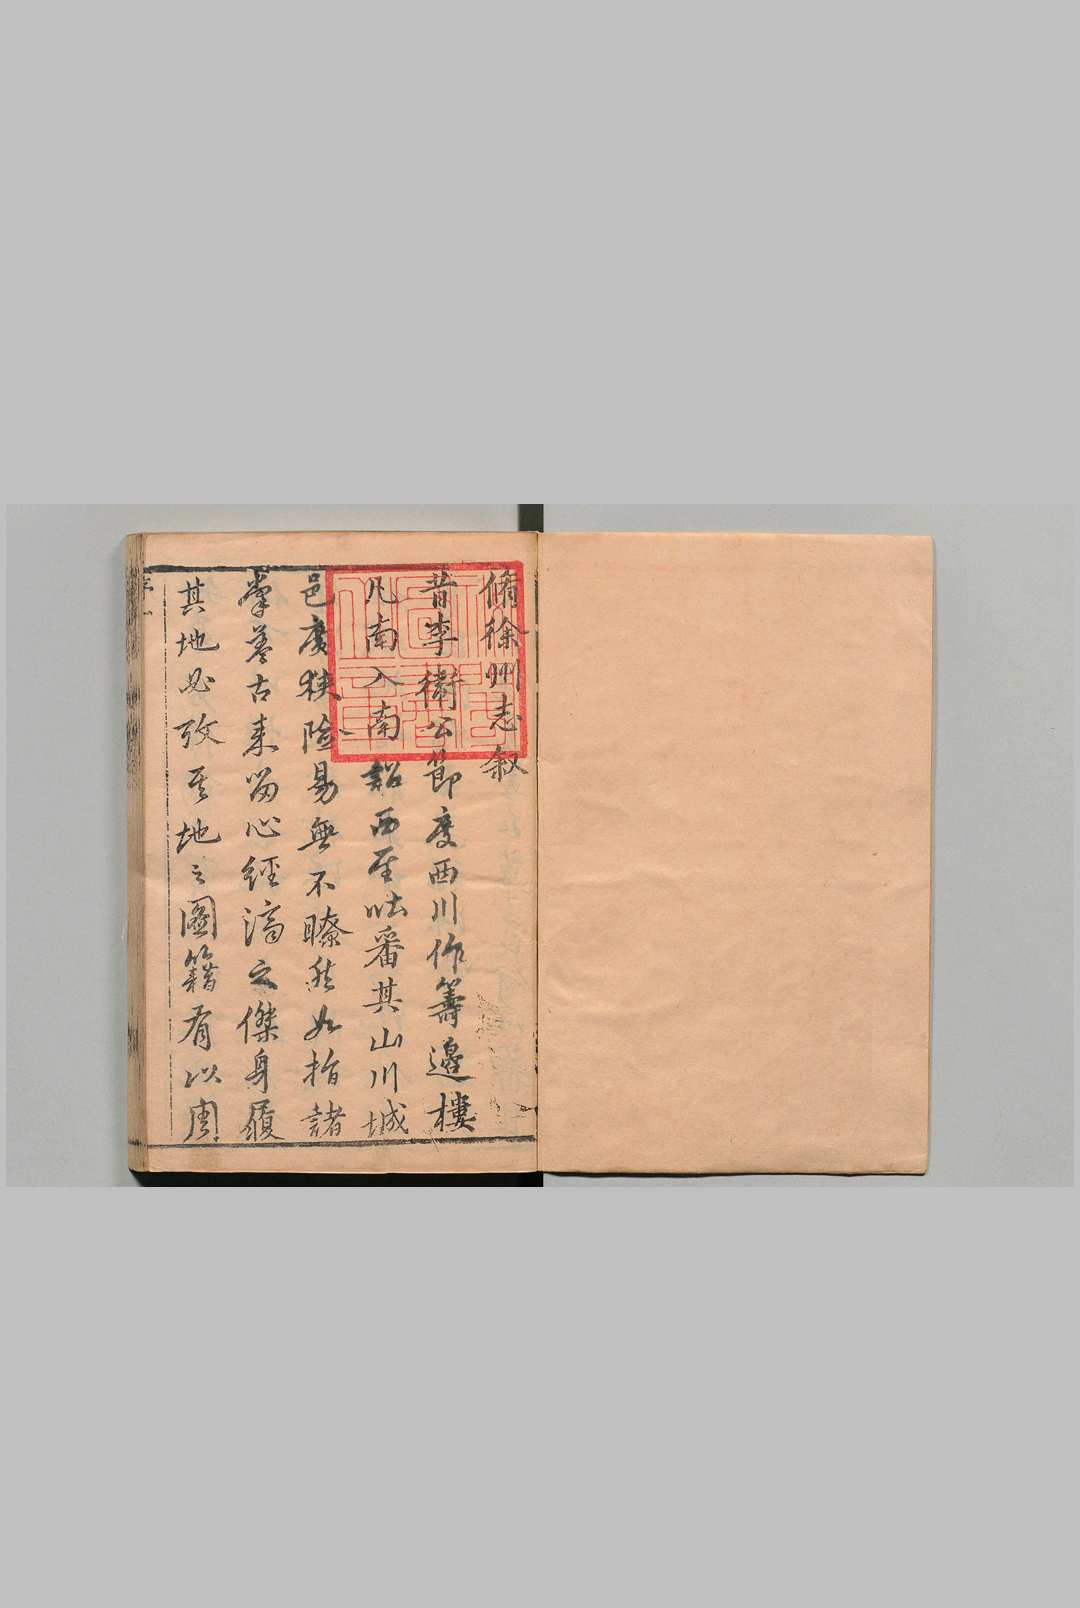 脩徐州志叙
昔李衛公節度西川作籌邊樓
凡南入南詔西至吐番其山川城
邑廣狹險易無不瞭然如指諸
掌蓋古來留心經濟之傑身履
其地必攷其地之圖籍有以周
序一